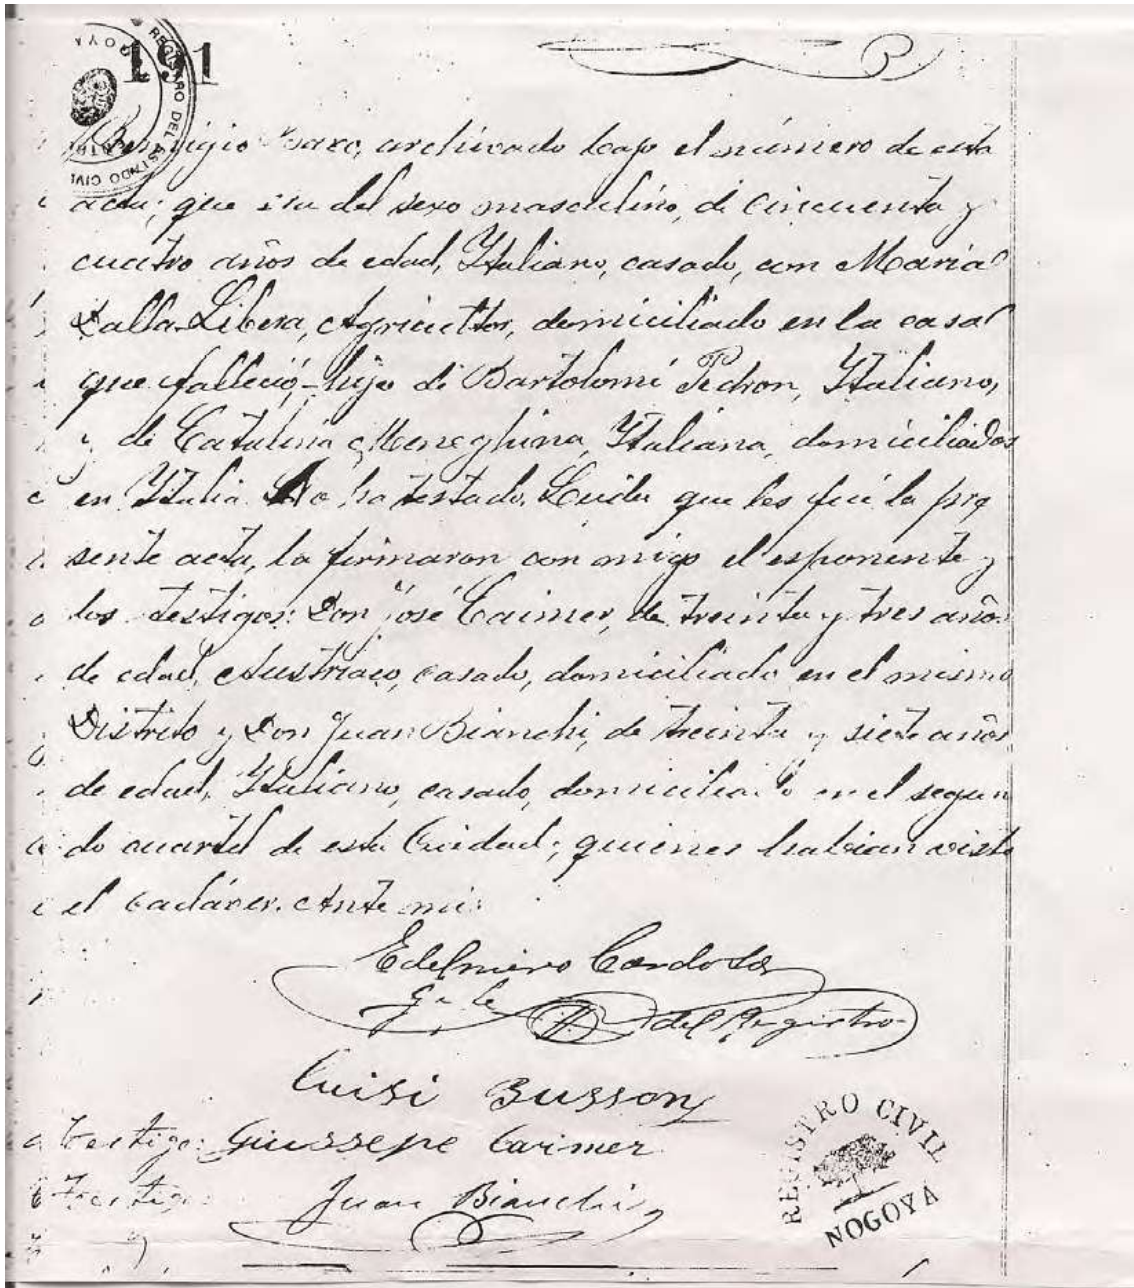 191
REGISTRO DEL ESTADO CIVIL
NOGOYA
Remigio archivado bajo el número de esta
acta; que era del sexo masculino, de cincuenta y
cuatro años de edad, Italiano, casado, con Maria
Dalla Libera, Agricultor, domiciliado en la casa
que falleció, hijo de Bartolomé Pedron, Italiano,
y de Catalina Meneghina, Italiana, domiciliados
en Italia. No ha testado. Leida que les fué la pre
sente acta, la firmaron con migo el esponente y
los testigos: Don José Caimer, de treinta y tres años
de edad, Austriaco, casado, domiciliado en el mismo
Distrito y Don Juan Bianchi, de treinta y siete años
de edad, Italiano, casado, domiciliado en el segun
do cuartel de esta Ciudad; quienes habian visto
el cadáver. Ante mi:
Edelmiro Cardoso
Gefe del Registro
Luisi Busson
Testigo: Giussepe Caimer
Testigo: Juan Bianchi
REGISTRO CIVIL
NOGOYA